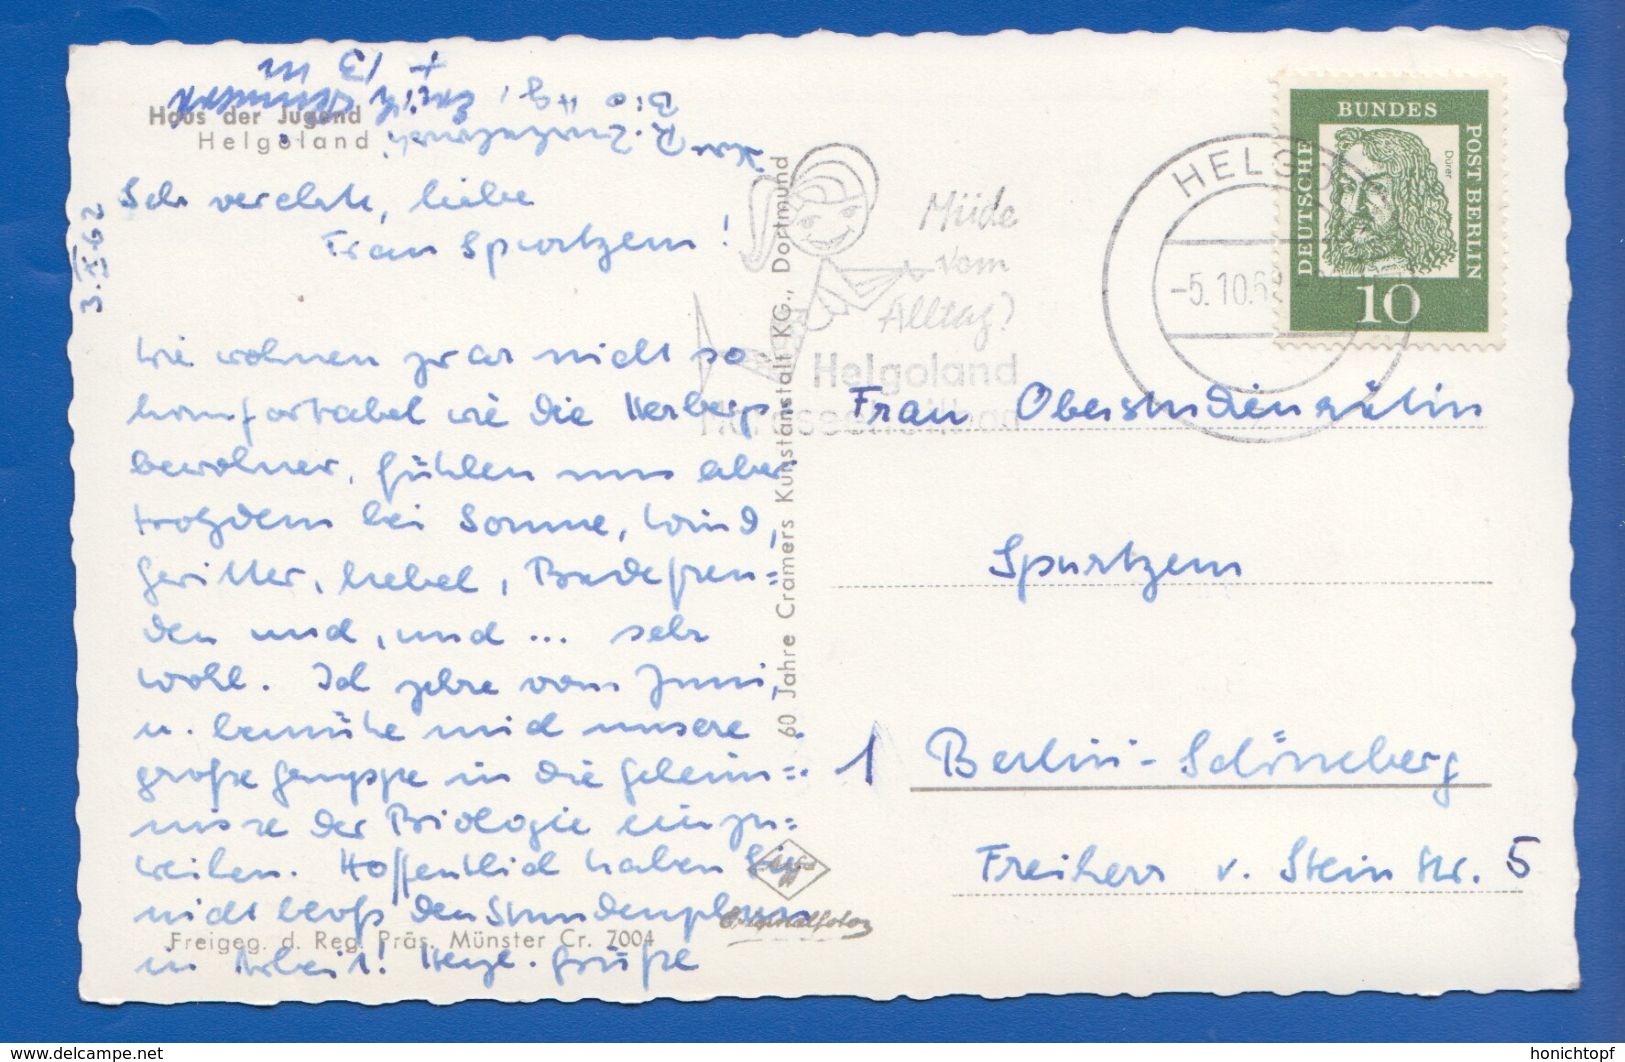 Haus der Jugend
Helgoland
3. X. 62
Sehr verehrte, liebe
Frau Spurtzem!
Wir wohnen zwar nicht so
komfortabel wie die Herbergs
bewohner, fühlen uns aber
trotzdem bei Sonne, Wind,
Gewitter, Nebel, Badefreu=
den und, und ... sehr
wohl. Ich zehre vom Juni,
u. bemühe mich unsere
große Gruppe in die Geheim=
nisse der Biologie einzu=
weihen. Hoffentlich haben Sie
nicht bloß den Stundenplan
in Arbeit! Herzl. Grüße
+ 13 m
Freigeg. d. Reg. Präs. Münster Cr. 7004
60 Jahre Cramers Kunstanstalt KG., Dortmund
Originalfoto
Müde
vom
Alltag?
Helgoland
Nordseeheilbad
HELGO
-5. 10. 62
DEUTSCHE
BUNDES
POST BERLIN
Dürer
10
Frau Oberstudienrätin
Spurtzem
1 Berlin-Schöneberg
Freiherr v. Stein Str. 5
www.delcampe.net
honichtopf